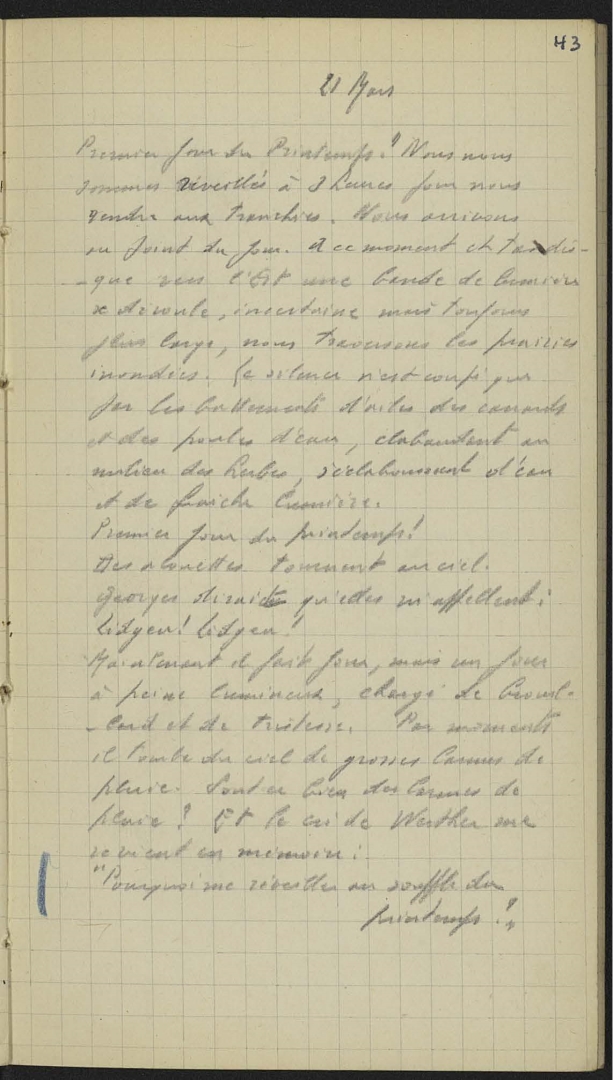 43
21 Mars
Premier jour du Printemps!" Nous nous
sommes réveillés à 3 heures pour nous
rendre aux tranchées. Nous arrivons
au point du jour. A ce moment et tandis-
-que vers l'Est une bande de lumière
se déroule, incertaine mais toujours
plus large, nous traversons les prairies
inondées. Le silence n'est coupé que
par les battements d'ailes des canards
et des poules d'eau, clabaudant au
milieu des herbes, s'éclaboussant d'eau
et de fraîche lumière.
Premier jour du printemps!
Des alouettes tournent au ciel.
Georges dirait qu'elles m'appellent:
Lidgeu! Lidgeu!
Maintenant il fait jour, mais un jour
à peine lumineux, chargé de brouil-
-lard et de tristesse. Par moments
il tombe du ciel de grosses larmes de
pluie. Sont-ce bien des larmes de
pluie? Et le cri de Werther me
revient en mémoire:
"Pourquoi me réveiller au souffle du
printemps!"